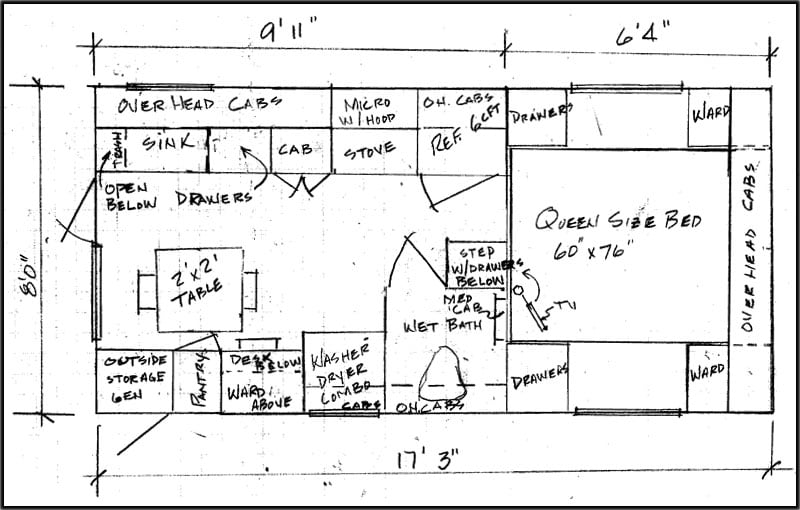 9' 11"
6' 4"
OVER HEAD CABS
MICRO
W/ HOOD
O.H. CABS
DRAWERS
WARD
TRASH
SINK
CAB
STOVE
REF. 6 CFT
OPEN
BELOW
DRAWERS
8'0"
2' x 2'
TABLE
STEP
W/DRAWERS
BELOW
QUEEN SIZE BED
60" x 76"
OVER HEAD CABS
MED
CAB
TV
WET BATH
OUTSIDE
STORAGE
GEN
PANTRY
DESK
BELOW
WARD
ABOVE
WASHER
DRYER
COMBO
CABS
O.H. CABS
DRAWERS
WARD
17' 3"